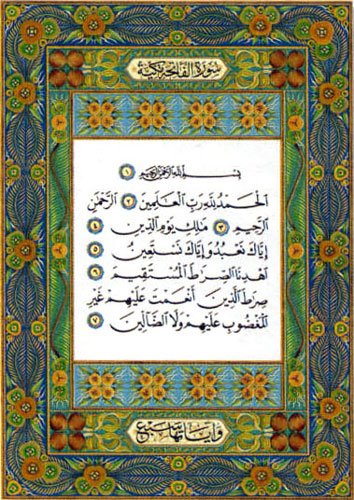 سُورَةُ الفَاتِحَةِ مَكِّيَّة
بِسْمِ اللَّهِ الرَّحْمَٰنِ الرَّحِيمِ ١
الْحَمْدُ لِلَّهِ رَبِّ الْعَالَمِينَ ٢ الرَّحْمَٰنِ
الرَّحِيمِ ٣ مَلِكِ يَوْمِ الدِّينِ ٤
إِيَّاكَ نَعْبُدُ وَإِيَّاكَ نَسْتَعِينُ ٥
اهْدِنَا الصِّرَطَ الْمُسْتَقِيمَ ٦
صِرَطَ الَّذِينَ أَنْعَمْتَ عَلَيْهِمْ غَيْرِ
الْمَغْضُوبِ عَلَيْهِمْ وَلَا الضَّالِّينَ ٧
وَآيَاتُهَا سَبْع